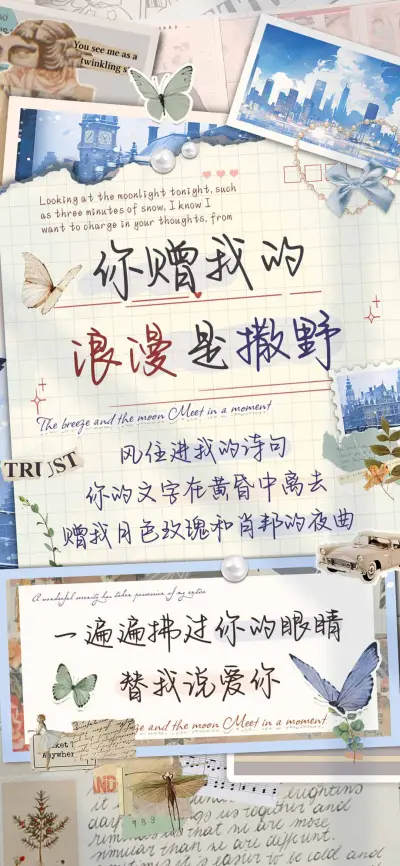 You see me as a
twinkling s
Looking at the moonlight tonight, such
as three minutes of snow, I know I
want to charge in your thoughts, from
你赠我的
浪漫是撒野
The breeze and the moon Meet in a moment
TRUST
风住进我的诗句
你的文字在黄昏中离去
赠我月色玫瑰和肖邦的夜曲
A wonderful serenity has taken possession of my entire
一遍遍拂过你的眼睛
替我说爱你
eze and the moon Meet in a moment
Anywhere
AND
789